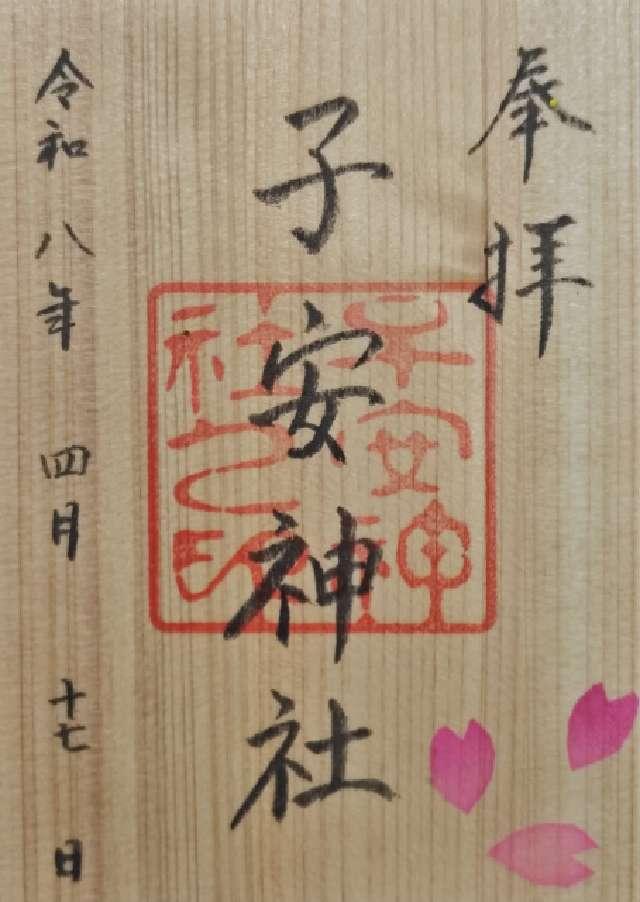 奉拝
子安神社
子安神社之印
令和八年四月十七日